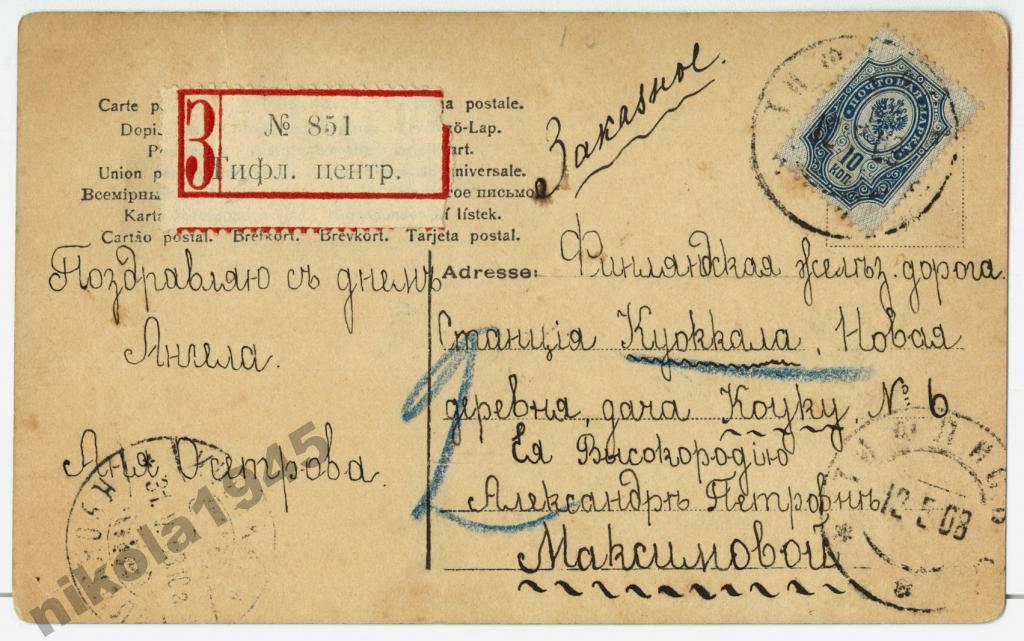 Заказное.
Carte postale.
Dopis -Lap.
Union universale.
Всемірны письмо
Karta lístek.
Cartão postal. Brefkort. Brevkort. Tarjeta postal.
З
№ 851
Тифл. центр.
ПОЧТОВАЯ МАРКА
10
КОП.
Поздравляю съ днемъ
Ангела.
Аня
Adresse:
Финляндская желѣз. дорога.
Станція Куоккала, Новая
деревня, дача Коуку, № 6
Ея Высокородію
Александрѣ Петровнѣ
Максимовой
2
ТИФЛИСЪ
5 08
nikola1945